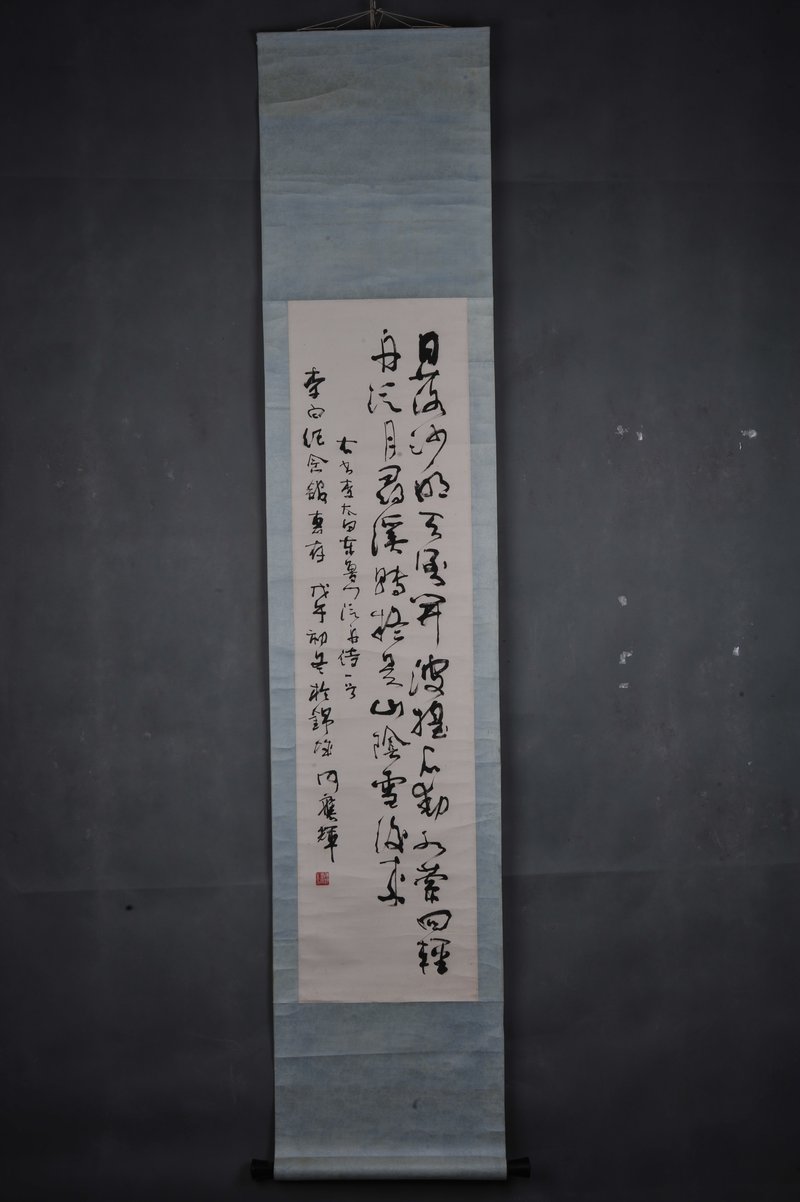 日落沙明天倒開波搖石動水縈回輕
舟泛月尋溪轉疑是山陰雪後來
右書李太白東魯門泛舟詩一首
李白纪念館惠存 戊午初冬於錦城 何應輝